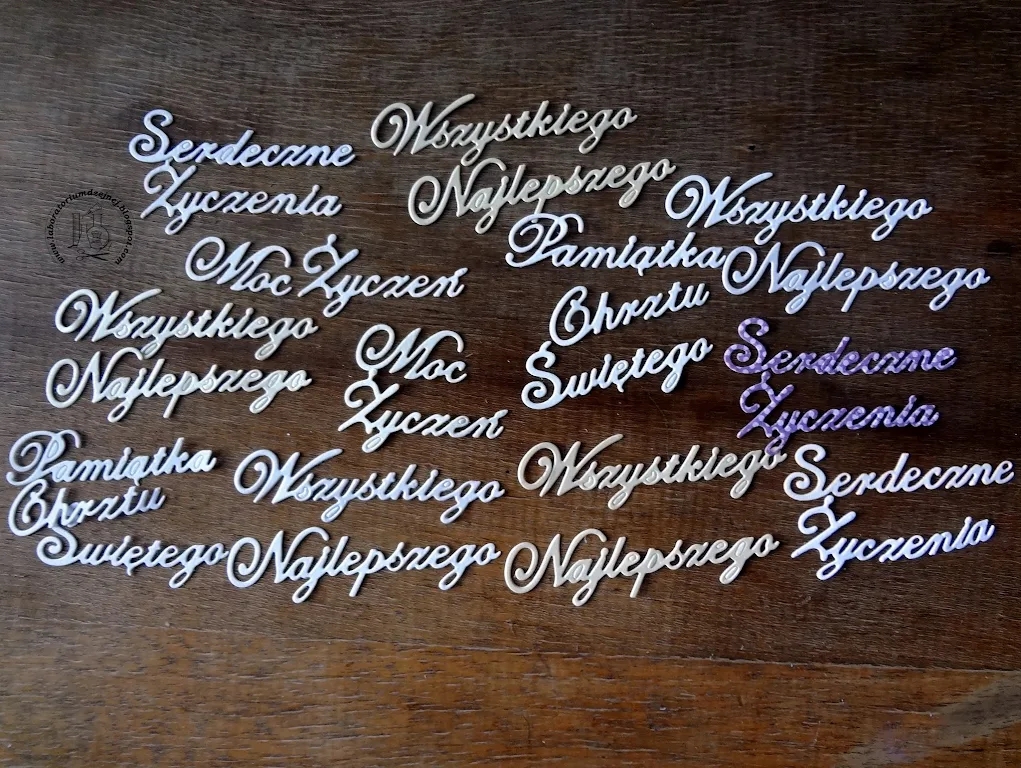 Serdeczne
Życzenia
Wszystkiego
Najlepszego
Wszystkiego
Najlepszego
www.laboratoriumdzejnej.blogspot.com
Moc Życzeń
Pamiątka
Chrztu
Świętego
Wszystkiego
Najlepszego
Moc
Życzeń
Serdeczne
Życzenia
Pamiątka
Chrztu
Świętego
Wszystkiego
Najlepszego
Wszystkiego
Najlepszego
Serdeczne
Życzenia